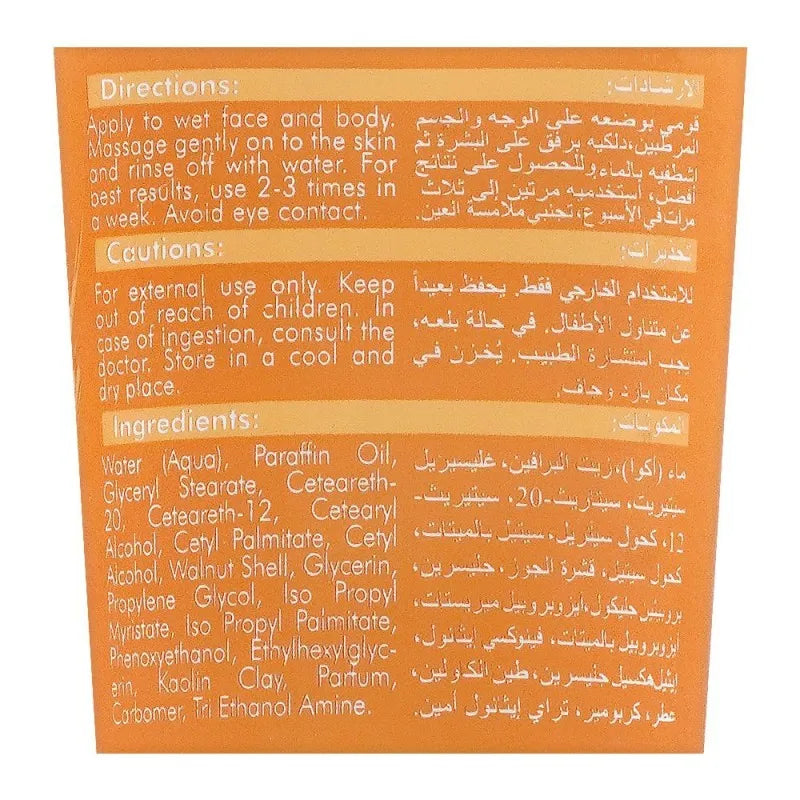 Directions:
Apply to wet face and body.
Massage gently on to the skin
and rinse off with water. For
best results, use 2-3 times in
a week. Avoid eye contact.
الارشادات:
قومي بوضعه على الوجه والجسم
المرطبين،دلكيه برفق على البشرة ثم
إشطفيه بالماء وللحصول على نتائج
أفضل، أستخدميه مرتين إلى ثلاث
مرات في الأسبوع، تجنبي ملامسة العين.
Cautions:
For external use only. Keep
out of reach of children. In
case of ingestion, consult the
doctor. Store in a cool and
dry place.
تحذيرات:
للاستخدام الخارجي فقط. يحفظ بعيداً
عن متناول الأطفال. في حالة بلعه،
يجب استشارة الطبيب. يُخزن في
مكان بارد وجاف.
Ingredients:
Water (Aqua), Paraffin Oil,
Glyceryl Stearate, Ceteareth-
20, Ceteareth-12, Cetearyl
Alcohol, Cetyl Palmitate, Cetyl
Alcohol, Walnut Shell, Glycerin,
Propylene Glycol, Iso Propyl
Myristate, Iso Propyl Palmitate,
Phenoxyethanol, Ethylhexylglyc-
erin, Kaolin Clay, Parfum,
Carbomer, Tri Ethanol Amine.
المكونات:
ماء (أكوا)، زيت البرافين، غليسيريل
ستيريت، سيتاريث-20، سيتيريث-
12، كحول سيتريل، سيتيل بالميتات،
كحول سيتيل، قشرة الجوز، جليسرين،
بروبيلين جليكول، ايزوبروبيل ميريستات،
أيزوبروبيل بالميتات، فينوكسي إيثانول،
إيثيل هكسيل جليسرين، طين الكاولين،
عطر، كربومير، تراي إيثانول أمين.